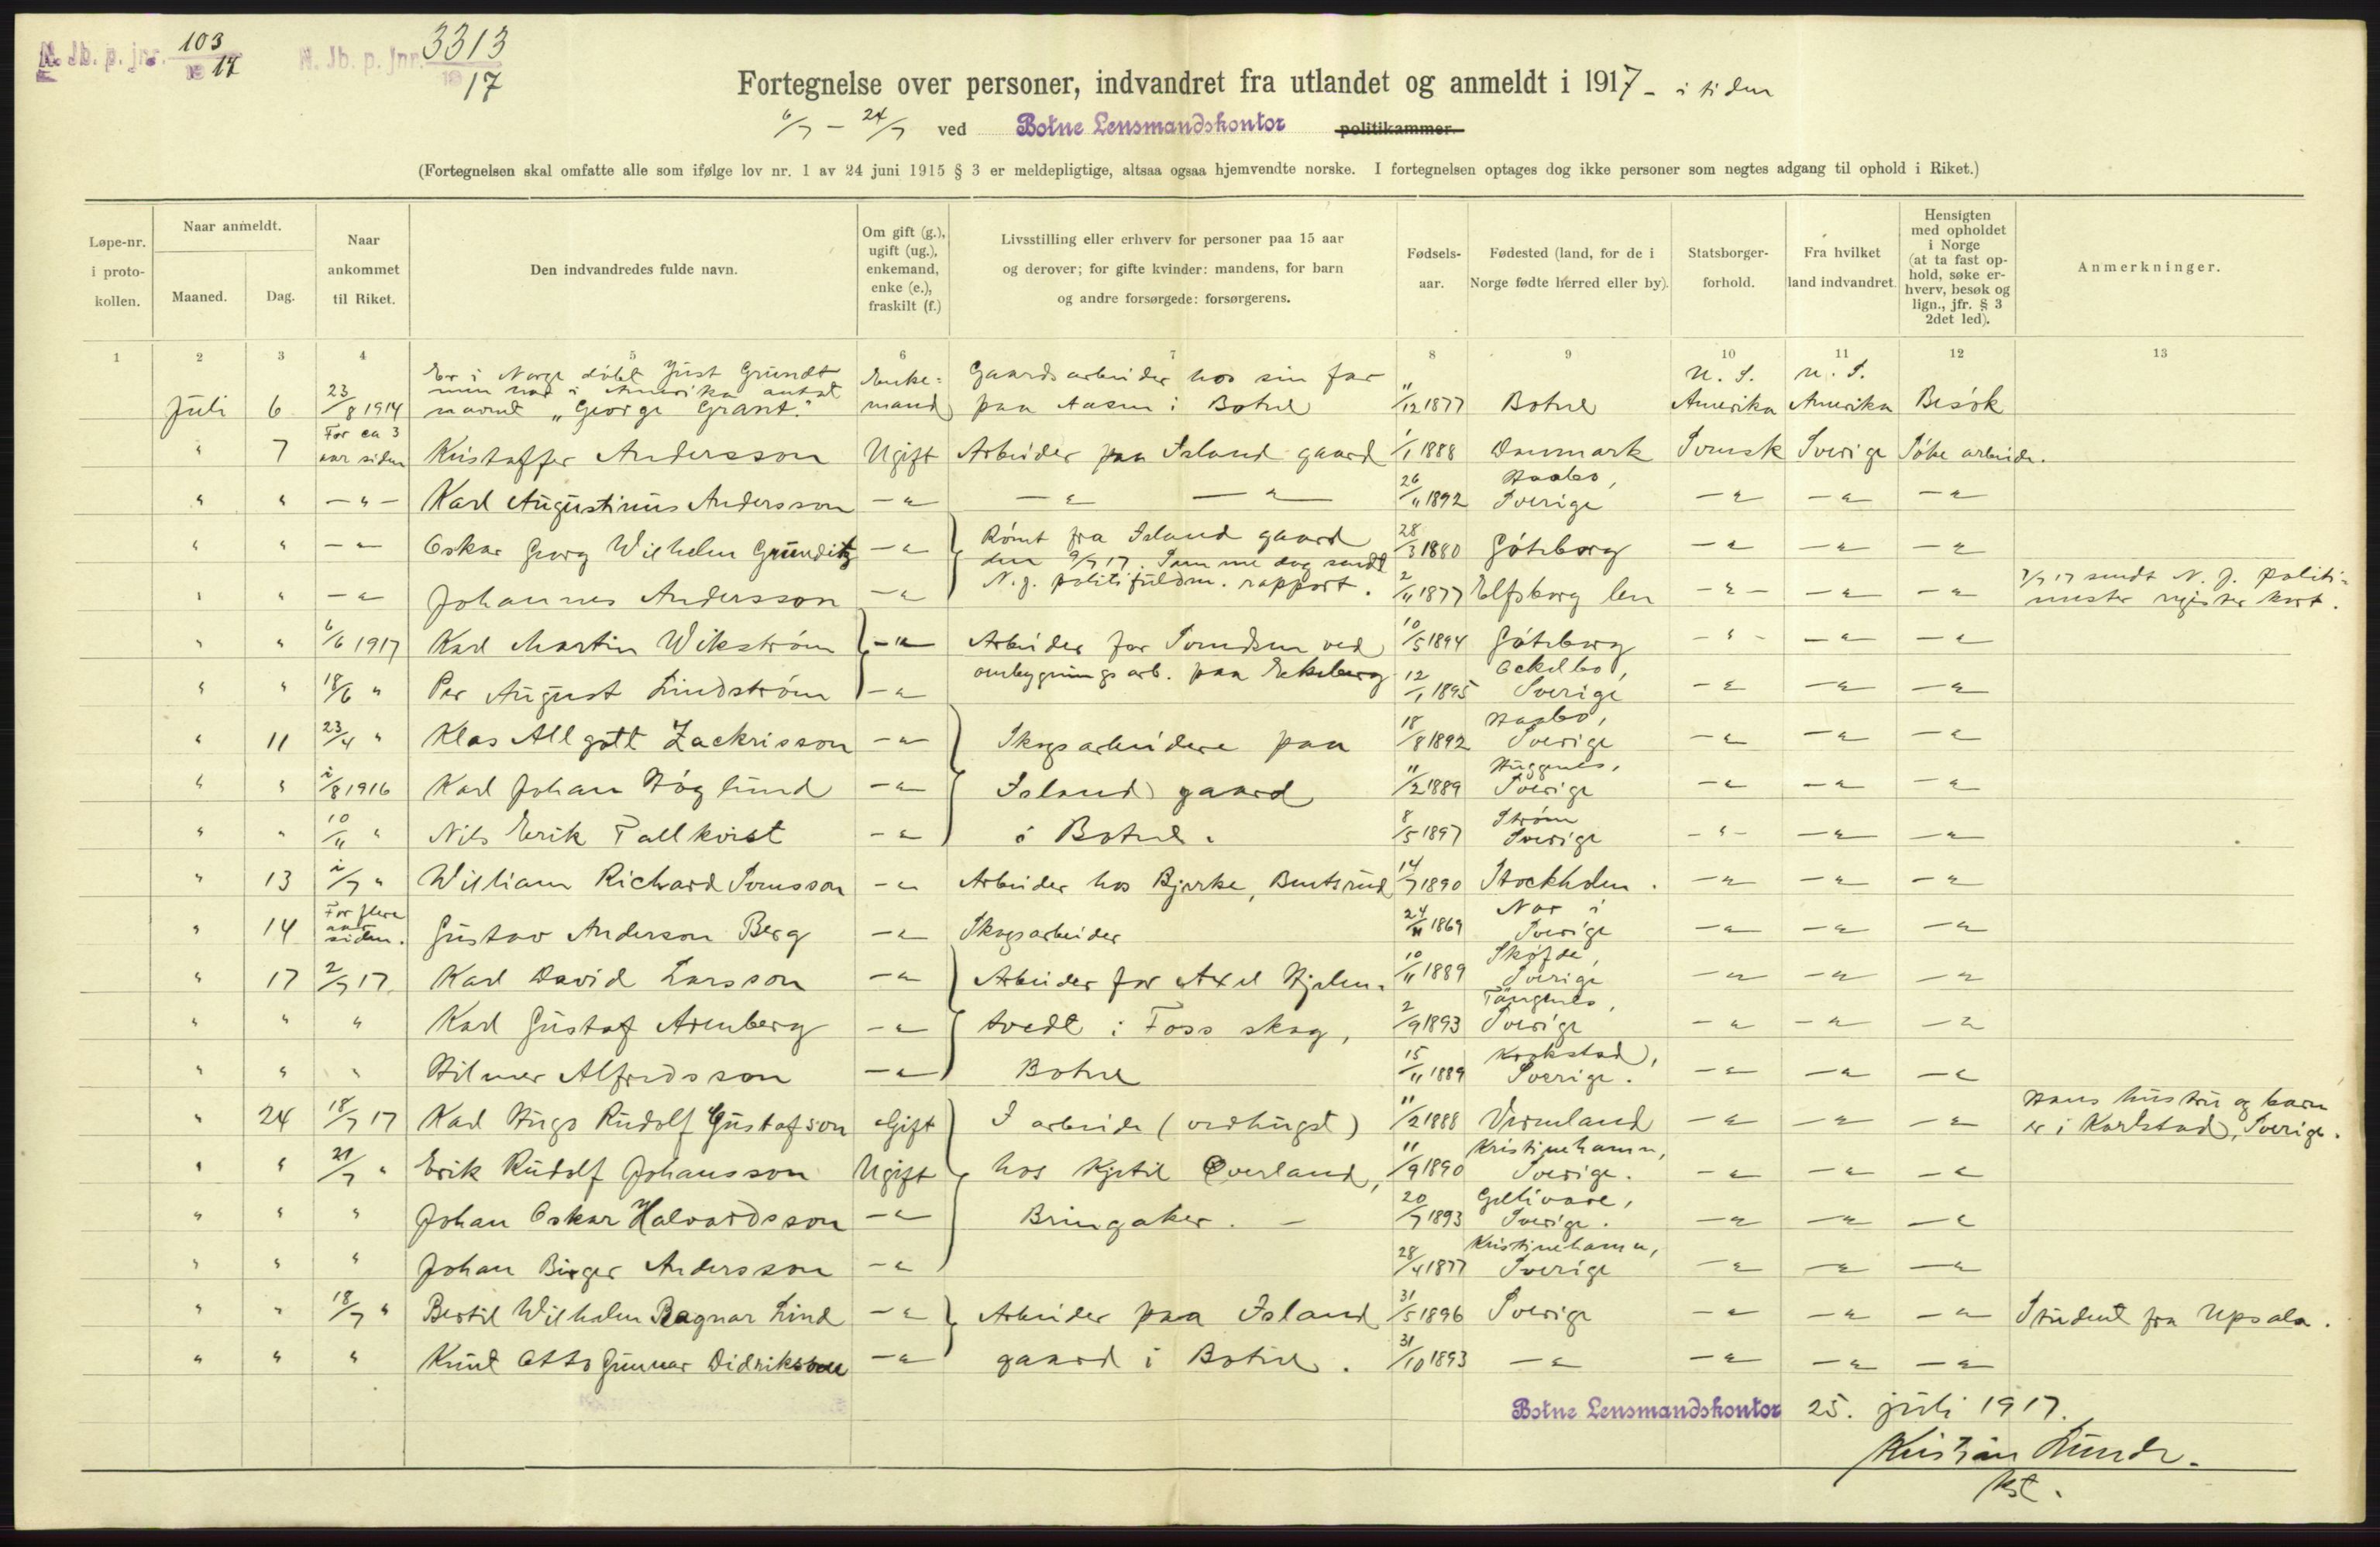 N. Jb. p. jnr. 103 / 1917
N. Jb. p. jnr. 3313 / 1917
Fortegnelse over personer, indvandret fra utlandet og anmeldt i 1917 - i tiden
6/7 - 24/7 ved Botne Lensmandskontor politikammer.
(Fortegnelsen skal omfatte alle som ifølge lov nr. 1 av 24 juni 1915 § 3 er meldepligtige, altsaa ogsaa hjemvendte norske. I fortegnelsen optages dog ikke personer som negtes adgang til ophold i Riket.)
Løpe-nr. i proto-kollen.
Naar anmeldt.
Maaned.
Dag.
Naar ankommet til Riket.
Den indvandredes fulde navn.
Om gift (g.), ugift (ug.), enkemand, enke (e.), fraskilt (f.)
Livsstilling eller erhverv for personer paa 15 aar og derover; for gifte kvinder: mandens, for barn og andre forsørgede: forsørgerens.
Fødsels-aar.
Fødested (land, for de i Norge fødte herred eller by).
Statsborger-forhold.
Fra hvilket land indvandret.
Hensigten med opholdet i Norge (at ta fast op-hold, søke er-hverv, besøk og lign., jfr. § 3 2det led).
Anmerkninger.
1 2 3 4 5 6 7 8 9 10 11 12 13
Juli 6 23/8 1914 Er i Norge døbt Just Grundt men har i Amerika antat navnet "George Grant." Enke=mand Gaardsarbeider hos sin far paa Aasen i Botne 11/12 1877 Botne U. S. Amerika U. S. Amerika Besøk
" 7 For ca 3 aar siden Kristoffer Andersson Ugift Arbeider paa Island gaard 1/1 1888 Danmark Svensk Sverige Søke arbeide.
" " -"- Karl Augustinus Andersson -"- -"- -"- 26/11 1892 Sverige -"- -"- -"-
" " -"- Oskar Georg Wilhelm Grunditz -"- Rømt fra Island gaard den 9/7 17. Samme dag sendt N. J. politifuldm. rapport. 28/3 1880 Göteborg -"- -"- -"-
" " -"- Johannes Andersson -"- 2/11 1877 Elfsborg len -"- -"- -"- 7/7 17 sendt N. J. politi=mester register kort.
" " 6/6 1917 Karl Martin Wikström -"- Arbeider for Svendsen ved ombygningsarb. paa Ekeberg 10/5 1894 Göteborg -"- -"- -"-
" " 18/6 " Per August Lindström -"- 12/1 1895 Ockelbo, Sverige -"- -"- -"-
" 11 23/4 " Klas Allgott Zackrisson -"- Skogsarbeidere paa 18/8 1892 Sverige -"- -"- -"-
" " 2/8 1916 Karl Johan Höglund -"- Island gaard 11/2 1889 Sverige -"- -"- -"-
" " 10/11 " Nils Erik Tallkvist -"- i Botne. 8/5 1897 Strøm Sverige -"- -"- -"-
" 13 2/7 " William Richard Svensson -"- Arbeider hos Bjerke, Bentsrud 14/7 1890 Stockholm. -"- -"- -"-
" 14 For flere aar siden. Gustav Anderson Berg -"- Skogsarbeider 24/11 1869 Nor i Sverige -"- -"- -"-
" 17 2/7 17. Karl David Larsson -"- Arbeider for Axel Hjelm= 10/11 1889 Sköfde, Sverige -"- -"- -"-
" " " Karl Gustaf Arenberg -"- tvedt i Foss skog, 2/9 1893 Tångenes, Sverige -"- -"- -"-
" " " Hilmer Alfredsson -"- Botne 15/11 1889 Krokstad, Sverige. -"- -"- -"-
" 24 18/7 17 Karl Hugo Rudolf Gustafson Gift I arbeide (vedhugst) 11/2 1888 Vermland -"- -"- -"- Hans hustru og barn er i Karlstad, Sverige.
" " 21/7 " Erik Rudolf Johansson Ugift hos Kjetil Overland, 11/9 1890 Kristinehamn, Sverige. -"- -"- -"-
" " " Johan Oskar Halvardsson -"- Bringaker. - 20/7 1893 Gellivare, Sverige. -"- -"- -"-
" " " Johan Birger Andersson -"- 28/4 1877 Kristinehamn, Sverige -"- -"- -"-
" " 18/7 " Bertil Wilhelm Ragnar Lind -"- Arbeider paa Island 31/5 1896 Sverige -"- -"- -"- Student fra Upsala.
" " " Knut Otto Gunnar Didriksson -"- gaard i Botne. 31/10 1893 -"- -"- -"- -"-
Botne Lensmandskontor 25. juli 1917.
Kristian Lunde.
kst.